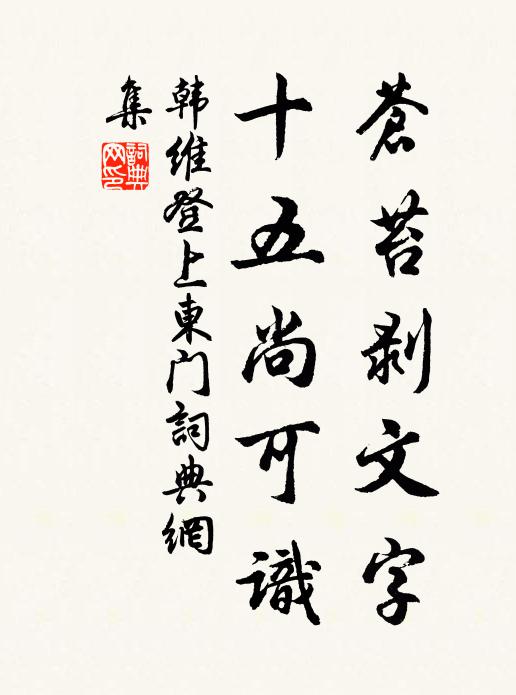 蒼苔剥文字
十五尚可識
韩维登上東门詞典網
集
詞典
网印